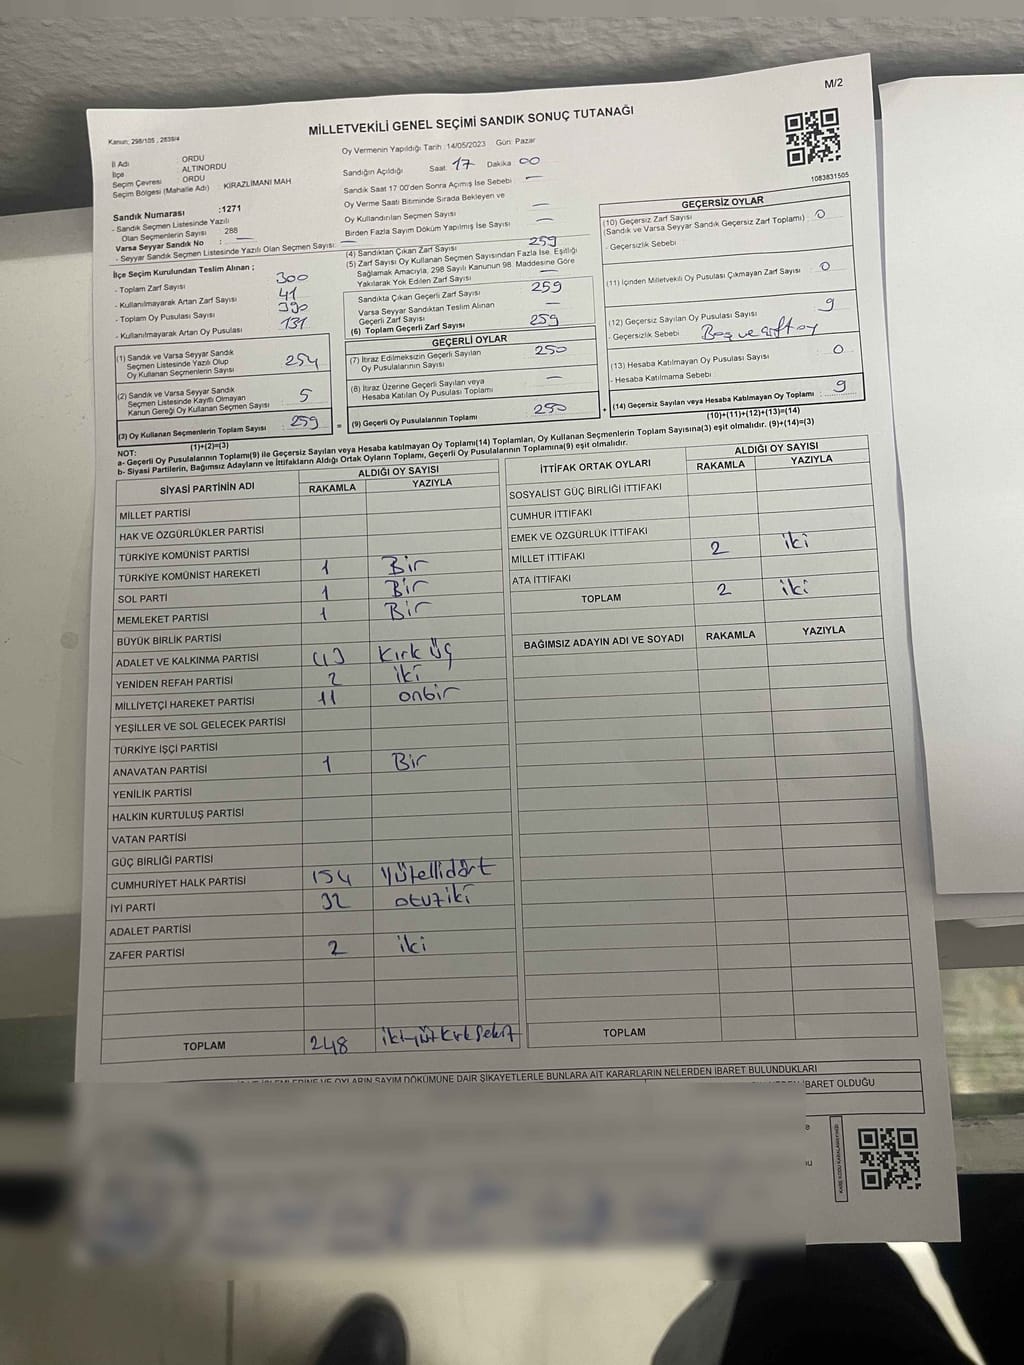 M/2
MİLLETVEKİLİ GENEL SEÇİMİ SANDIK SONUÇ TUTANAĞI
Kanun: 298/105 , 2839/4
Oy Vermenin Yapıldığı Tarih :14/05/2023 Gün: Pazar
İl Adı : ORDU
İlçe : ALTINORDU
Seçim Çevresi : ORDU
Seçim Bölgesi (Mahalle Adı) : KİRAZLİMANI MAH
Sandığın Açıldığı Saat 17 Dakika 00
Sandık Saat 17 00'den Sonra Açımış İse Sebebi : —
Oy Verme Saati Bitiminde Sırada Bekleyen ve
Oy Kullandırılan Seçmen Sayısı —
Birden Fazla Sayım Döküm Yapılmış İse Sayısı —
1083831505
Sandık Numarası :1271
- Sandık Seçmen Listesinde Yazılı
Olan Seçmenlerin Sayısı 288
Varsa Seyyar Sandık No : —
- Seyyar Sandık Seçmen Listesinde Yazılı Olan Seçmen Sayısı: —
İlçe Seçim Kurulundan Teslim Alınan ;
- Toplam Zarf Sayısı 300
- Kullanılmayarak Artan Zarf Sayısı 41
- Toplam Oy Pusulası Sayısı 390
- Kullanılmayarak Artan Oy Pusulası 131
(1) Sandık ve Varsa Seyyar Sandık
Seçmen Listesinde Yazılı Olup
Oy Kullanan Seçmenlerin Sayısı 254
(2) Sandık ve Varsa Seyyar Sandık
Seçmen Listesinde Kayıtlı Olmayan
Kanun Gereği Oy Kullanan Seçmen Sayısı 5
(3) Oy Kullanan Seçmenlerin Toplam Sayısı : 259
(1)+(2)=(3)
(4) Sandıktan Çıkan Zarf Sayısı 259
(5) Zarf Sayısı Oy Kullanan Seçmen Sayısından Fazla İse, Eşitliği
Sağlamak Amacıyla, 298 Sayılı Kanunun 98. Maddesine Göre
Yakılarak Yok Edilen Zarf Sayısı —
Sandıkta Çıkan Geçerli Zarf Sayısı 259
Varsa Seyyar Sandıktan Teslim Alınan
Geçerli Zarf Sayısı —
(6) Toplam Geçerli Zarf Sayısı 259
GEÇERLİ OYLAR
(7) İtiraz Edilmeksizin Geçerli Sayılan
Oy Pusulalarının Sayısı 250
(8) İtiraz Üzerine Geçerli Sayılan veya
Hesaba Katılan Oy Pusulası Toplamı —
= (9) Geçerli Oy Pusulalarının Toplamı 250 +
GEÇERSİZ OYLAR
(10) Geçersiz Zarf Sayısı
(Sandık ve Varsa Seyyar Sandık Geçersiz Zarf Toplamı) : 0
- Geçersizlik Sebebi
(11) İçinden Milletvekili Oy Pusulası Çıkmayan Zarf Sayısı 0
(12) Geçersiz Sayılan Oy Pusulası Sayısı 9
- Geçersizlik Sebebi : Boş ve çift oy
(13) Hesaba Katılmayan Oy Pusulası Sayısı 0
- Hesaba Katılmama Sebebi :
(14) Geçersiz Sayılan veya Hesaba Katılmayan Oy Toplamı 9
(10)+(11)+(12)+(13)=(14)
NOT:
a- Geçerli Oy Pusulalarının Toplamı(9) ile Geçersiz Sayılan veya Hesaba katılmayan Oy Toplamı(14) Toplamları, Oy Kullanan Seçmenlerin Toplam Sayısına(3) eşit olmalıdır. (9)+(14)=(3)
b- Siyasi Partilerin, Bağımsız Adayların ve İttifakların Aldığı Ortak Oyların Toplamı, Geçerli Oy Pusulalarının Toplamına(9) eşit olmalıdır.
SİYASİ PARTİNİN ADI ALDIĞI OY SAYISI
RAKAMLA YAZIYLA
MİLLET PARTİSİ
HAK VE ÖZGÜRLÜKLER PARTİSİ
TÜRKİYE KOMÜNİST PARTİSİ
TÜRKİYE KOMÜNİST HAREKETİ 1 Bir
SOL PARTİ 1 Bir
MEMLEKET PARTİSİ 1 Bir
BÜYÜK BİRLİK PARTİSİ
ADALET VE KALKINMA PARTİSİ 43 Kırk Üç
YENİDEN REFAH PARTİSİ 2 iki
MİLLİYETÇİ HAREKET PARTİSİ 11 onbir
YEŞİLLER VE SOL GELECEK PARTİSİ
TÜRKİYE İŞÇİ PARTİSİ
ANAVATAN PARTİSİ 1 Bir
YENİLİK PARTİSİ
HALKIN KURTULUŞ PARTİSİ
VATAN PARTİSİ
GÜÇ BİRLİĞİ PARTİSİ
CUMHURİYET HALK PARTİSİ 154 Yüzellidört
İYİ PARTİ 32 otuziki
ADALET PARTİSİ
ZAFER PARTİSİ 2 iki
TOPLAM 248 ikiyüzkırksekiz
İTTİFAK ORTAK OYLARI ALDIĞI OY SAYISI
RAKAMLA YAZIYLA
SOSYALİST GÜÇ BİRLİĞİ İTTİFAKI
CUMHUR İTTİFAKI
EMEK VE ÖZGÜRLÜK İTTİFAKI
MİLLET İTTİFAKI 2 iki
ATA İTTİFAKI
TOPLAM 2 iki
BAĞIMSIZ ADAYIN ADI VE SOYADI RAKAMLA YAZIYLA
TOPLAM
İŞLEMLERİNE VE OYLARIN SAYIM DÖKÜMÜNE DAİR ŞİKAYETLERLE BUNLARA AİT KARARLARIN NELERDEN İBARET BULUNDUKLARI
İBARET OLDUĞU